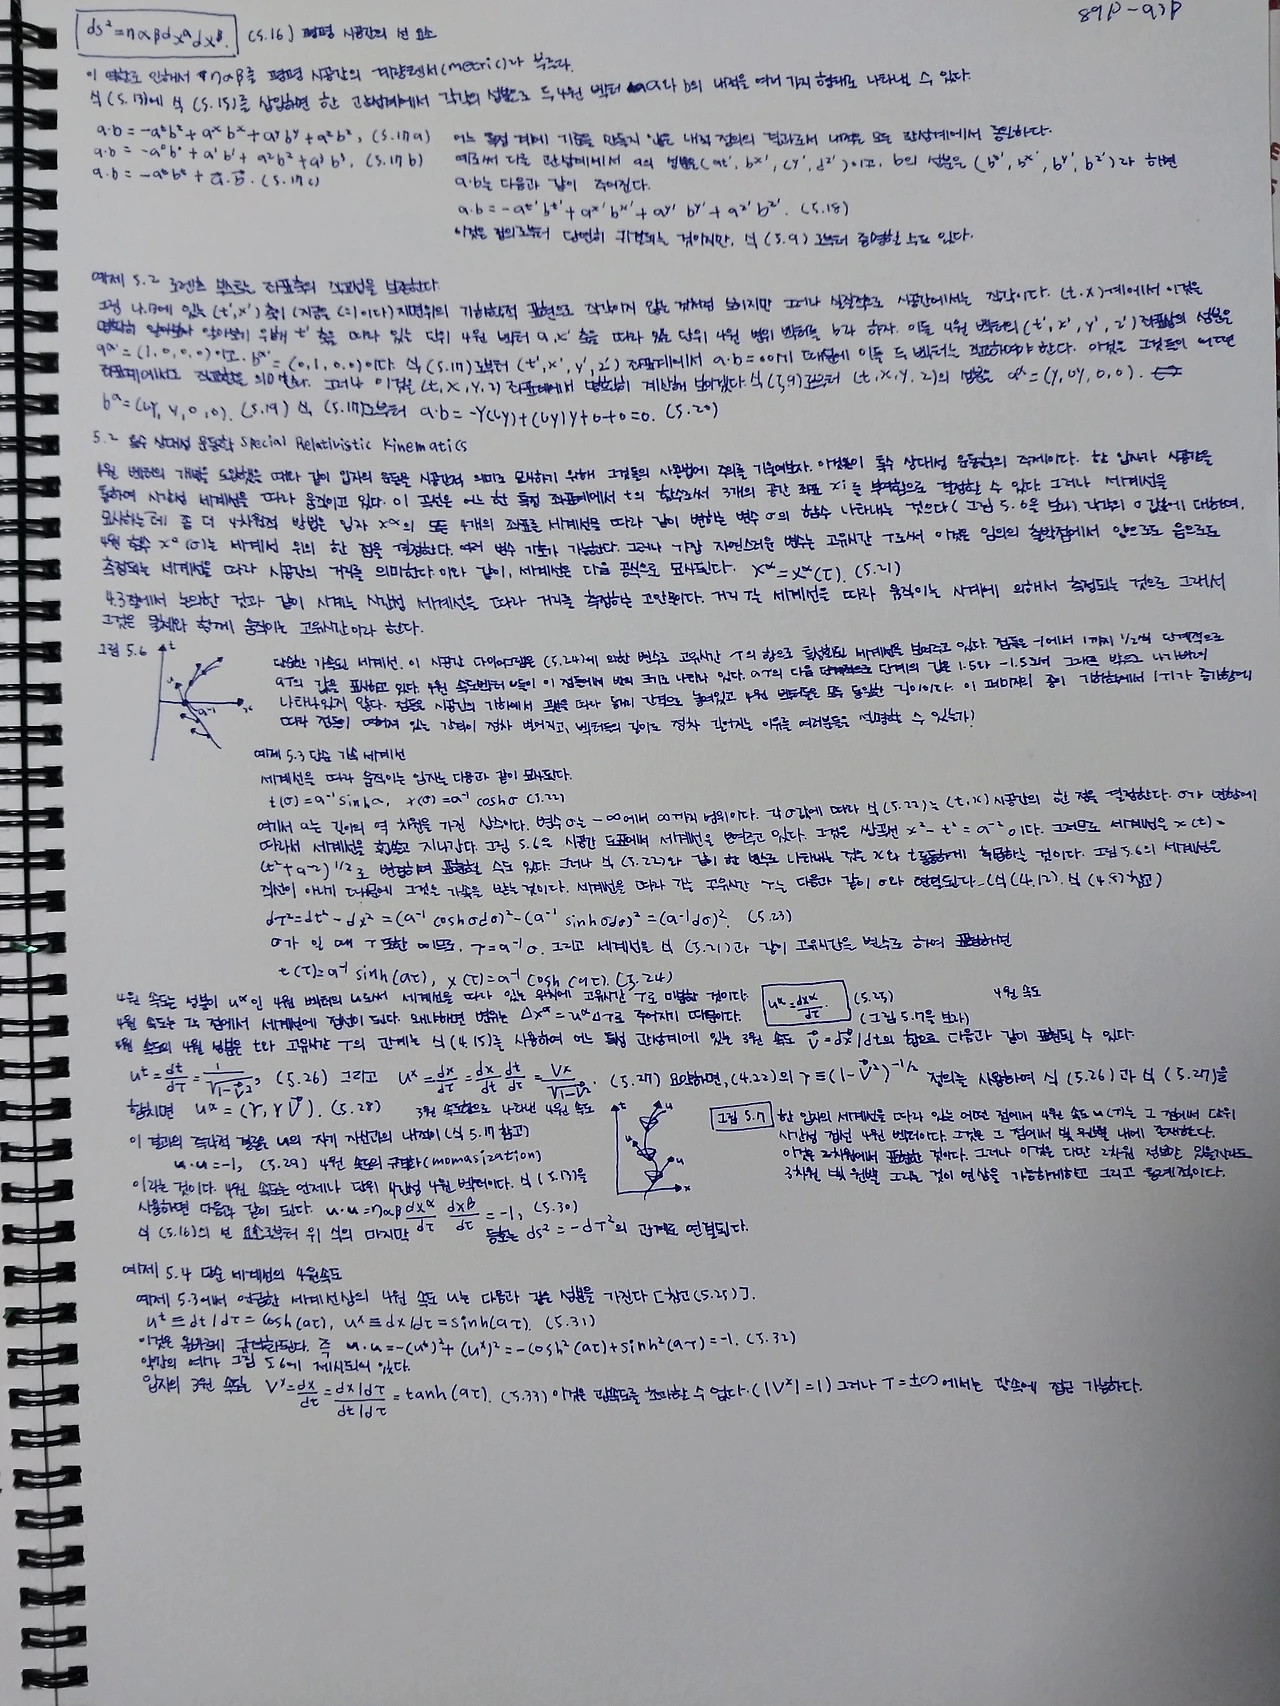 89p-93p
ds²=ηαβdxᵅdxᵝ. (5.16) 평평 시공간의 선 요소
이 역할로 인해서 ηαβ를 평평 시공간의 계량텐서(metric)라 부르다.
식 (5.13)에 식 (5.15)를 삽입하면 한 관성계에서 각각의 성분으로 두 4원 벡터 a와 b의 내적을 여러 가지 형태로 나타낼 수 있다.
a·b=-aᵗbᵗ+aˣbˣ+aʸbʸ+aᶻbᶻ, (5.17a)
a·b=-a⁰b⁰+a¹b¹+a²b²+a³b³, (5.17b)
a·b=-a⁰b⁰+a⃗·b⃗. (5.17c)
어느 특정 계에 기준을 만들지 않은 내적 정의의 결과로서 내적은 모든 관성계에서 동일하다.
예로써 다른 관성계에서 a의 성분을(at', bx', cy', dz')이고, b의 성분을 (bt', bx', by', bz')라 하면
a·b는 다음과 같이 주어진다.
a·b=-aᵗ'bᵗ'+aˣ'bˣ'+aʸ'bʸ'+aᶻ'bᶻ'. (5.18)
이것은 정의로부터 당연히 귀결되는 것이지만, 식 (5.9)로부터 증명할 수도 있다.
예제 5.2 로렌츠 부스트는 좌표축의 직교성을 보존한다.
그림 4.17에 있는 (t',x') 축이 (지금은 c=1이다) 지면위의 기하학적 표현으로 직각이지 않는 것처럼 보이지만 그러나 실질적으로 시공간에서는 직각이다. (t.x)계에서 이것을
명확히 알아보기 위해 t' 축을 따라 있는 단위 4원 벡터 a, x' 축을 따라 있는 단위 4원 변위 벡터를 b라 하자. 이들 4원 벡터의 (t', x', y', z') 좌표상의 성분은
aᵅ'=(1,0,0,0)이고, bᵅ'=(0,1,0,0)이다. 식 (5.17)로부터 (t',x',y',z') 좌표계에서 a·b=0이기 때문에 이들 두 벡터는 직교하여야 한다. 이것은 그것들이 어떤
좌표계에서도 직교함을 의미한다. 그러나 이것을 (t,x,y,z) 좌표계에서 명확히 계산해 보이겠다. 식(5.9)로부터 (t,x,y,z)의 성분은 aᵅ=(γ, υγ, 0, 0).
bᵅ=(υγ, γ, 0, 0). (5.19) 식 (5.17)로부터 a·b=-γ(υγ)+(υγ)γ+0+0=0. (5.20)
5.2 특수 상대성 운동학 Special Relativistic Kinematics
4원 벡터의 개념을 도입했을 때와 같이 입자의 운동을 시공간적 의미로 묘사하기 위해 그것들의 사용법에 주의를 기울여보자. 이것들이 특수 상대성 운동학의 주제이다. 한 입자가 시공간을
통하여 시간성 세계선을 따라 움직이고 있다. 이 곡선은 어느 한 특정 좌표계에서 t의 함수로써 3개의 공간 좌표 xi를 부여함으로 결정할 수 있다. 그러나 세계선을
묘사하는데 좀 더 4차원적 방법은 입자 xᵅ의 모든 4개의 좌표를 세계선을 따라 같이 변하는 변수 σ의 함수 나타내는 것으다(그림 5.6을 보라). 각각의 σ값에 대하여,
4원 함수 xᵅ(σ)는 세계선 위의 한 점을 결정한다. 여러 변수 기호가 가능한다. 그러나 가장 자연스러운 변수는 고유시간 τ로써 이것은 임의의 출발점에서 양으로도 음으로도
측정되는 세계선을 따라 시공간의 거리를 의미한다 이와 같이, 세계선은 다음 공식으로 묘사된다. xᵅ=xᵅ(τ). (5.21)
4.3절에서 논의한 것과 같이 시계는 시간성 세계선을 따라 거리를 측정하는 고안물이다. 거리 τ는 세계선을 따라 움직이는 시계에 의해서 측정되는 것으로 그래서
그것은 물체와 함께 움직이는 고유시간이라 한다.
그림 5.6
t
x
a⁻¹
단순한 가속된 세계선. 이 시공간 다이어그램은 (5.24)에 의한 변수로 고유시간 τ의 항으로 특성화된 세계선을 보여주고 있다. 점들은 -1에서 1까지 1/2씩 단계적으로
aτ의 값을 표시하고 있다. 4원 속도벡터 u들이 이 점들에서 반의 크기로 나타나 있다. aτ의 다음 단계의 값은 1.5와 -1.5로서 그래프 밖으로 나가버려
나타나있지 않다. 점들은 시공간의 기하에서 곡선을 따라 동일 간격으로 놓여있고 4원 벡터들은 모두 동일한 길이이다. 이 페이지의 종이 기하학에서 |τ|가 증가함에
따라 점들이 떨어져 있는 간격이 점차 벌어지고, 벡터들의 길이도 점차 길어지는 이유를 여러분들은 설명할 수 있는가?
예제 5.3 단순 가속 세계선
세계선을 따라 움직이는 입자는 다음과 같이 묘사된다.
t(σ)=a⁻¹sinhσ, x(σ)=a⁻¹coshσ (5.22)
여기서 a는 길이의 역 차원을 가진 상수이다. 변수 σ는 -∞에서 ∞까지 범위이다. 각 σ값에 따라 식 (5.22)는 (t,x) 시공간의 한 점을 결정한다. σ가 변함에
따라서 세계선을 휩쓸고 지나간다. 그림 5.6은 시공간 도표에서 세계선을 보여주고 있다. 그것은 쌍곡선 x²-t²=a⁻²이다. 그러므로 세계선을 x(t)=
(t²+a⁻²)¹/²로 변환하여 표현할 수도 있다. 그러나 식 (5.22)와 같이 한 변수로 나타내는 것은 x와 t동등하게 취급하는 것이다. 그림 5.6의 세계선은
직선이 아니기 때문에 그것은 가속을 받는 것이다. 세계선을 따라 가는 고유시간 τ는 다음과 같이 σ와 연력된다-(식(4.12). 식 (4.8) 참고)
dτ²=dt²-dx²=(a⁻¹coshσdσ)²-(a⁻¹sinhσdσ)²=(a⁻¹dσ)². (5.23)
σ가 일 때 τ 또한 0이므로, τ=a⁻¹σ. 그리고 세계선을 식 (5.21)과 같이 고유시간을 변수로 하여 표현하면
t(τ)=a⁻¹sinh(aτ), x(τ)=a⁻¹cosh(aτ). (5.24)
4원 속도는 성분이 uᵅ인 4원 벡터의 u로써 세계선을 따라 있는 위치에 고유시간 τ로 미분한 것이다. uᵅ=dxᵅ/dτ. (5.25) 4원 속도
4원 속도는 각 점에서 세계선에 접선이 된다. 왜냐하면 변위는 Δxᵅ=uᵅΔτ로 주어지기 때문이다. (그림 5.7을 보라)
4원 속도의 4원 성분은 t와 고유시간 τ의 관계는 식(4.15)를 사용하여 어느 특정 관성계에 있는 3원 속도 V⃗=dx⃗/dt의 항으로 다음과 같이 표현될 수 있다.
uᵗ=dt/dτ=1/√1-V⃗², (5.26) 그리고 uˣ=dx/dτ=dx/dt dt/dτ=Vˣ/√1-V⃗². (5.27) 요약하면, (4.22)의 γ≡(1-V⃗²)⁻¹/² 정의를 사용하여 식 (5.26)과 식 (5.27)을
합치면 uᵅ=(γ, γV⃗). (5.28) 3원 속도항으로 나타낸 4원 속도
이 결과의 즉각적 결론은 u의 자기 자신과의 내적이 (식 5.17 참고)
u·u=-1, (5.29) 4원 속도의 규격화(momasization)
이라는 것이다. 4원 속도는 언제나 단위 시간성 4원 벡터이다. 식 (5.13)을
사용하면 다음과 같이 된다. u·u=ηαβ dxᵅ/dτ dxᵝ/dτ=-1, (5.30)
식 (5.16)의 선 요소로부터 위 식의 마지막 등호는 ds²=-dτ²의 관계로 연결된다.
t
u
u
u
x
그림 5.7
한 입자의 세계선을 따라 있는 어떤 점에서 4원 속도 u(τ)는 그 점에서 단위
시간성 접선 4원 벡터이다. 그것은 그 점에서 빛 원뿔 내에 존재한다.
이것은 2차원에서 표현한 것이다. 그러나 이것은 다만 2차원 정보만 있을지라도
3차원 빛 원뿔 그리는 것이 연상을 가능하게하고 그리고 통계적이다.
예제 5.4 단순 세계선의 4원속도
예제 5.3에서 언급한 세계선상의 4원 속도 u는 다음과 같은 성분을 가진다 [참고(5.25)].
uᵗ≡dt/dτ=cosh(aτ), uˣ≡dx/dτ=sinh(aτ). (5.31)
이것은 올바르게 규격화된다. 즉 u·u=-(uᵗ)²+(uˣ)²=-cosh²(aτ)+sinh²(aτ)=-1. (5.32)
약간의 예가 그림 5.6에 제시되어 있다.
입자의 3원 속도는 Vˣ=dx/dt=dx/dτ/dt/dτ=tanh(aτ). (5.33) 이것은 광속도를 초과할 수 없다. (|Vˣ|=1) 그러나 τ=±∞에서는 광속에 접근 가능하다.